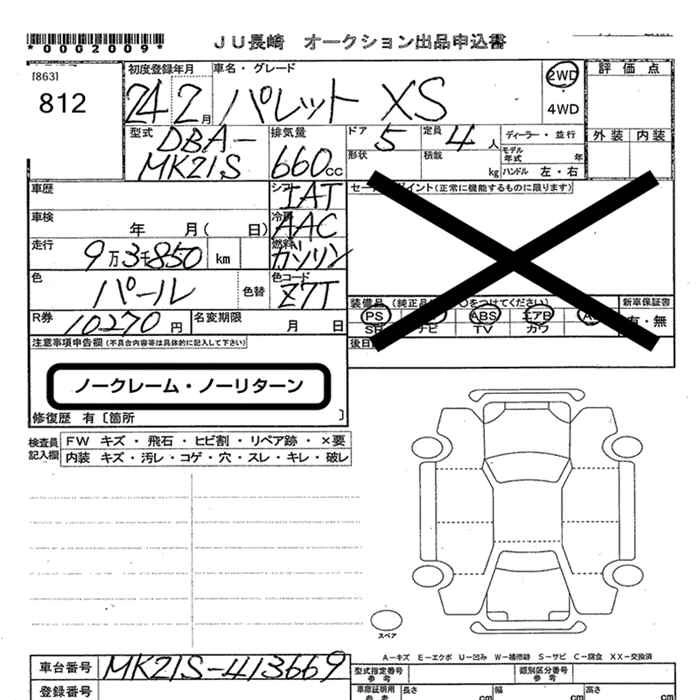 *0002009*
JU長崎 オークション出品申込書
[863]
812
初度登録年月 車名・グレード
24 2月 パレット XS
2WD
4WD
評価点
外装 内装
型式 排気量 ドア 定員 ディーラー・並行
DBA-
MK21S 660cc 5 4人
モデル年式 年
形状 積載 kg ハンドル 左・右
車歴 シフト IAT
セールスポイント(正常に機能するものに限ります)
車検 年 月( 日) 冷房 AAC
走行 9万3千850 km 燃料 ガソリン
色 パール 色替 色コード Z7T
装備品 (純正品 ○をつけてください) 新車保証書
PS ABS エアB 有・無
SR ナビ TV カワ
R券 10270円 名変期限 月 日
注意事項申告欄(不具合内容等は具体的に記入して下さい)
後日
ノークレーム・ノーリターン
修復歴 有〔箇所 〕
検査員記入欄
FW キズ・飛石・ヒビ割・リペア跡・×要
内装 キズ・汚レ・コゲ・穴・スレ・キレ・破レ
スペア
A−キズ E−エクボ U−凹み W−補修跡 S−サビ C−腐食 XX−交換済
車台番号 MK21S-413669
型式指定番号 参考 類別区分番号 参考
登録番号
車庫証明用 参考 長さ cm 幅 cm 高さ cm